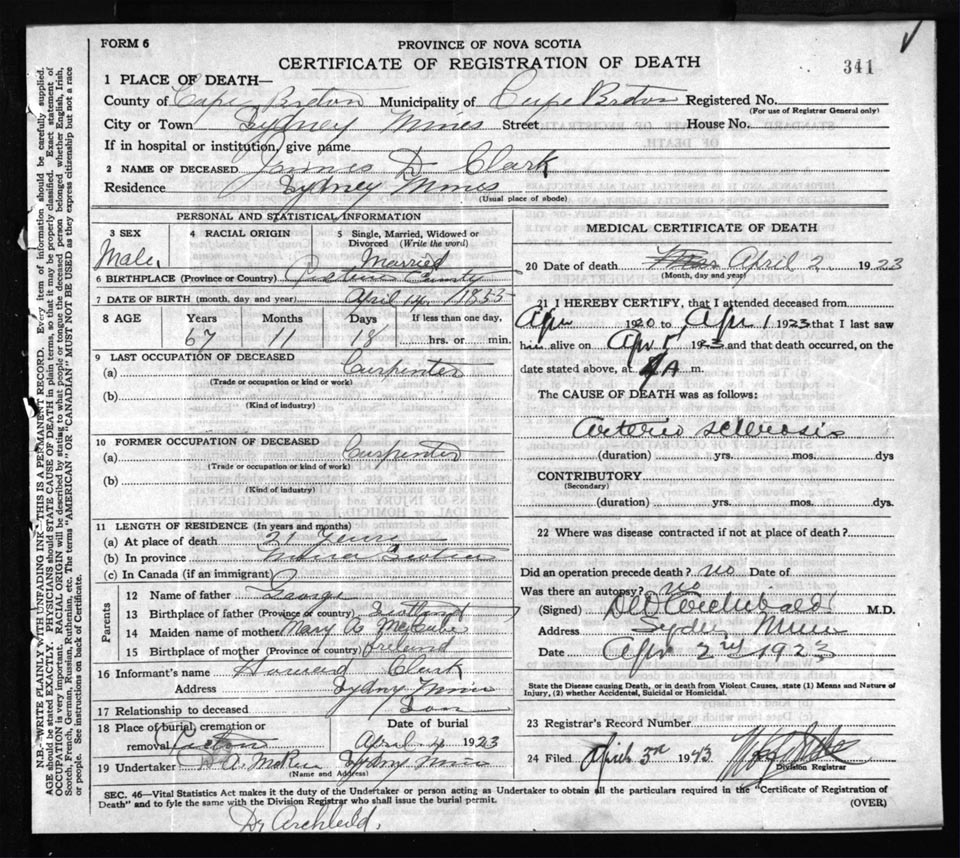 FORM 6
PROVINCE OF NOVA SCOTIA
CERTIFICATE OF REGISTRATION OF DEATH
341
1 PLACE OF DEATH—
County of Cape Breton Municipality of Cape Breton Registered No.
(For use of Registrar General only)
City or Town Sydney Mines Street House No.
If in hospital or institution, give name
2 NAME OF DECEASED James D Clark
Residence Sydney Mines
(Usual place of abode)
PERSONAL AND STATISTICAL INFORMATION
3 SEX 4 RACIAL ORIGIN 5 Single, Married, Widowed or Divorced (Write the word)
Male Married
6 BIRTHPLACE (Province or Country) County
7 DATE OF BIRTH (month, day and year) April 14 1855
8 AGE Years Months Days If less than one day,
67 11 18 hrs. or min.
9 LAST OCCUPATION OF DECEASED
(a) Carpenter
(Trade or occupation or kind or work)
(b)
(Kind of industry)
10 FORMER OCCUPATION OF DECEASED
(a) Carpenter
(Trade or occupation or kind or work)
(b)
(Kind of industry)
11 LENGTH OF RESIDENCE (In years and months)
(a) At place of death 21 Years
(b) In province Nova Scotia
(c) In Canada (if an immigrant)
Parents
12 Name of father George
13 Birthplace of father (Province or country) Scotland
14 Maiden name of mother Mary A McCabe
15 Birthplace of mother (Province or country) Ireland
16 Informant's name Howard Clark
Address Sydney Mines
17 Relationship to deceased Son
18 Place of burial, cremation or Date of burial
removal April 4 1923
19 Undertaker A. McRae Sydney Mines
(Name and Address)
MEDICAL CERTIFICATE OF DEATH
20 Date of death April 2 1923
(Month, day and year)
21 I HEREBY CERTIFY, that I attended deceased from
Apr 1920 to Apr 1 1923 that I last saw
him alive on Apr 1 1923 and that death occurred, on the
date stated above, at A m.
The CAUSE OF DEATH was as follows:
Arterio sclerosis
(duration) yrs. mos. dys
CONTRIBUTORY
(Secondary)
(duration) yrs. mos. dys.
22 Where was disease contracted if not at place of death?
Did an operation precede death? no Date of
Was there an autopsy? no
(Signed) Archibald M.D.
Address Sydney Mines
Date Apr 2nd 1923
State the Disease causing Death, or in death from Violent Causes, state (1) Means and Nature of
Injury, (2) whether Accidental, Suicidal or Homicidal.
23 Registrar's Record Number
24 Filed April 3rd 1923
Division Registrar
SEC. 46—Vital Statistics Act makes it the duty of the Undertaker or person acting as Undertaker to obtain all the particulars required in the "Certificate of Registration of
Death" and to fyle the same with the Division Registrar who shall issue the burial permit.
(OVER)
Dr Archibald.
N.B.—WRITE PLAINLY WITH UNFADING INK—THIS IS A PERMANENT RECORD. Every item of information should be carefully supplied.
AGE should be stated EXACTLY. PHYSICIANS should STATE CAUSE OF DEATH in plain terms, so that it may be properly classified. Exact statement of
OCCUPATION is very important. RACIAL ORIGIN will be described by stating to what people or tongue the deceased person belonged, whether English, Irish,
Scotch, French, German, Russian, Ruthenian, etc. The terms "AMERICAN" OR "CANADIAN" MUST NOT BE USED as they express citizenship but not a race
or people. See instructions on back of Certificate.